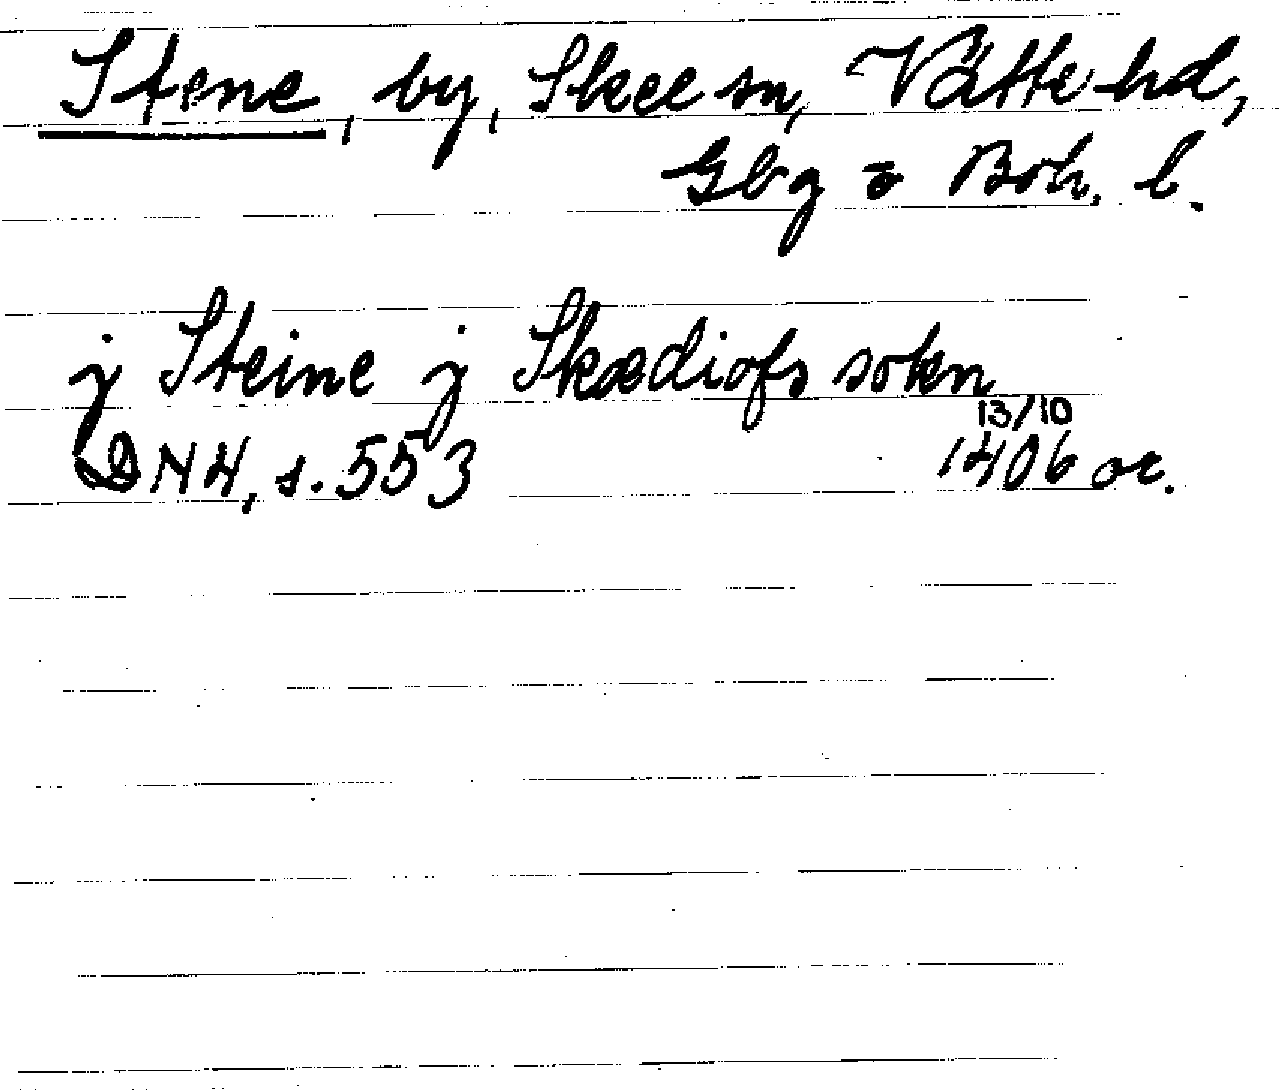 Stene, by, Skee sn, Vätte hd,
Gbg o Boh. l.
j Steine j Skædiofs sokn
13/10
DN 4, s. 553 1406 or.